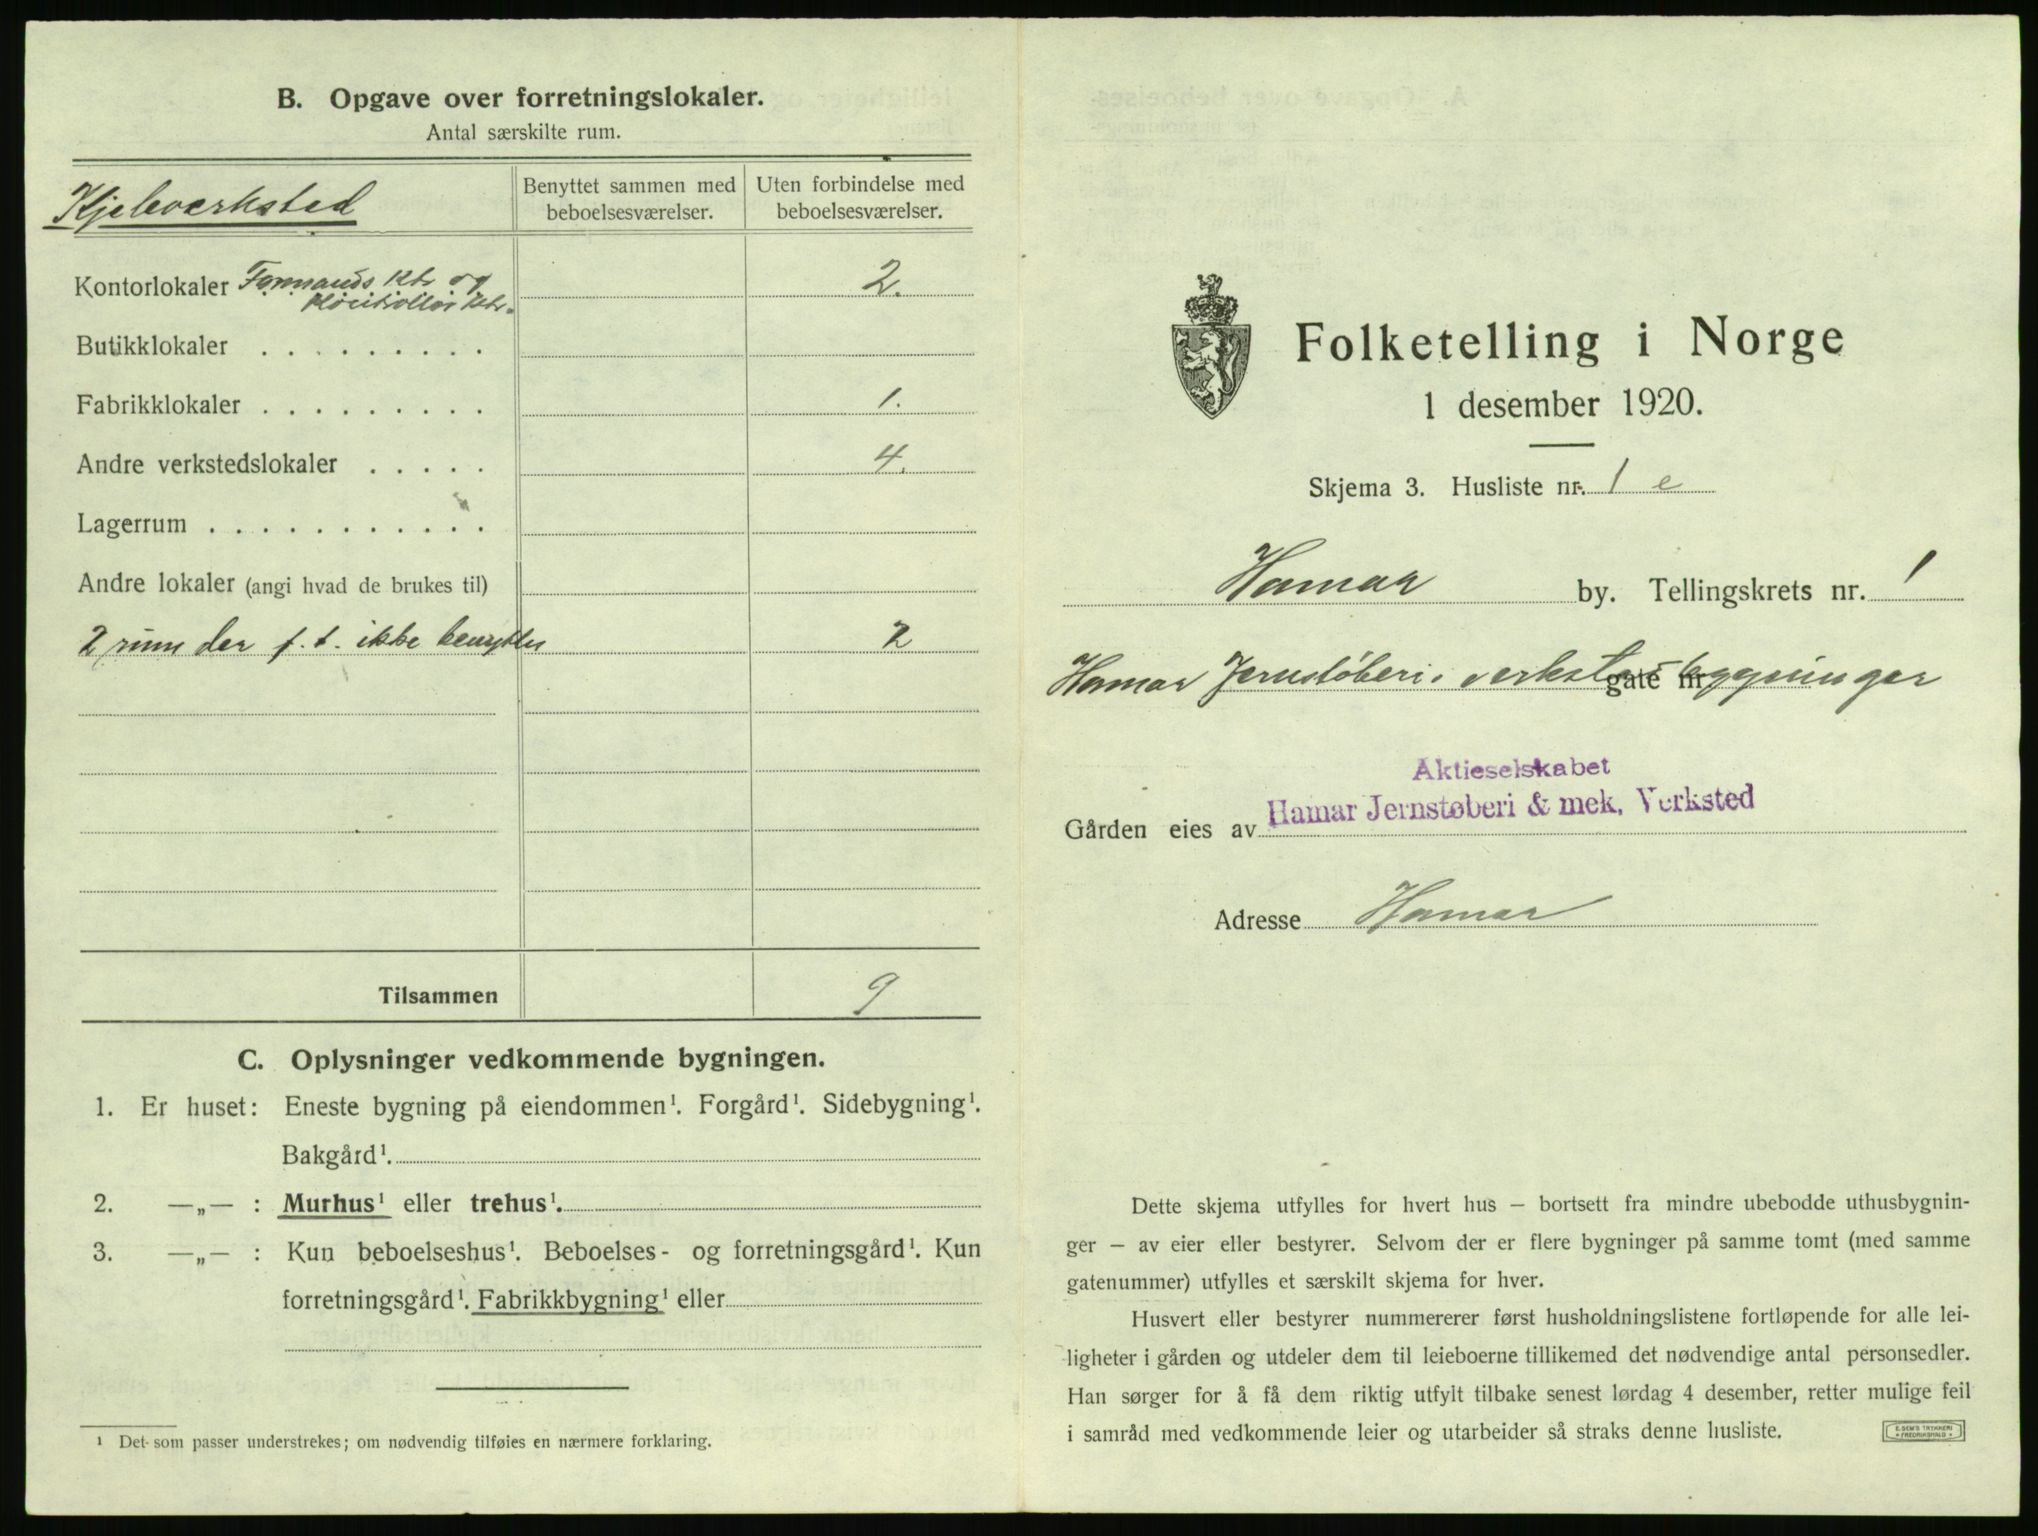 B. Opgave over forretningslokaler.
Antal særskilte rum.
Kjeleverksted
Benyttet sammen med
beboelsesværelser.
Uten forbindelse med
beboelsesværelser.
Kontorlokaler Formands ktr og 2.
kontrollør ktr.
Butikklokaler . . . . . . . . .
Fabrikklokaler . . . . . . . . . 1.
Andre verkstedslokaler . . . . . 4.
Lagerrum . . . . . . . . . . .
Andre lokaler (angi hvad de brukes til)
2 rum der f. t. ikke benyttes 2
Tilsammen 9
C. Oplysninger vedkommende bygningen.
1. Er huset: Eneste bygning på eiendommen¹. Forgård¹. Sidebygning¹.
Bakgård¹.
2. —„— : Murhus¹ eller trehus¹.
3. —„— : Kun beboelseshus¹. Beboelses- og forretningsgård¹. Kun
forretningsgård¹. Fabrikkbygning¹ eller
¹ Det som passer understrekes; om nødvendig tilføies en nærmere forklaring.
Folketelling i Norge
1 desember 1920.
Skjema 3. Husliste nr. 1 e
Hamar by. Tellingskrets nr. 1
Hamar Jernstøberi. verksteds bygninger
gate nr
Aktieselskabet
Hamar Jernstøberi & mek. Verksted
Gården eies av
Adresse Hamar
Dette skjema utfylles for hvert hus — bortsett fra mindre ubebodde uthusbygnin-
ger — av eier eller bestyrer. Selvom der er flere bygninger på samme tomt (med samme
gatenummer) utfylles et særskilt skjema for hver.
Husvert eller bestyrer nummererer først husholdningslistene fortløpende for alle lei-
ligheter i gården og utdeler dem til leieboerne tillikemed det nødvendige antal personsedler.
Han sørger for å få dem riktig utfylt tilbake senest lørdag 4 desember, retter mulige feil
i samråd med vedkommende leier og utarbeider så straks denne husliste.
E. SEM'S TRYKKERI
• FREDRIKSHALD •